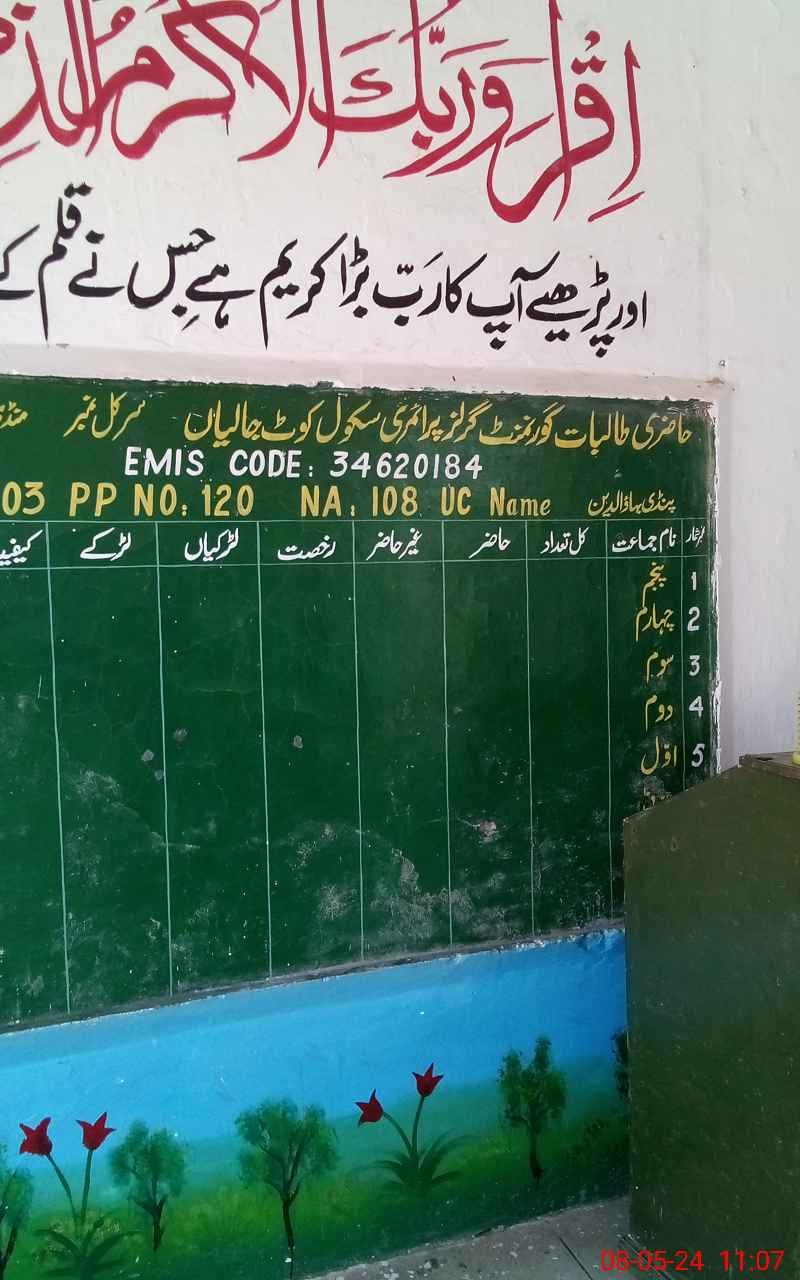 اِقْرَاْ وَرَبُّكَ الْاَكْرَمُ الَّذِ
اور پڑھیے آپ کا رَبّ بڑا کریم ہے جِس نے قلم کے
حاضری طالبات گورنمنٹ گرلز پرائمری سکول کوٹ جالیاں سرکل نمبر
EMIS CODE: 34620184
03 PP NO: 120 NA: 108 UC Name پنڈی بہاؤالدین
نمبر شمار نام جماعت کل تعداد حاضر غیر حاضر رخصت لڑکیاں لڑکے
1 پنجم
2 چہارم
3 سوم
4 دوم
5 اوّل
08-05-24 11:07